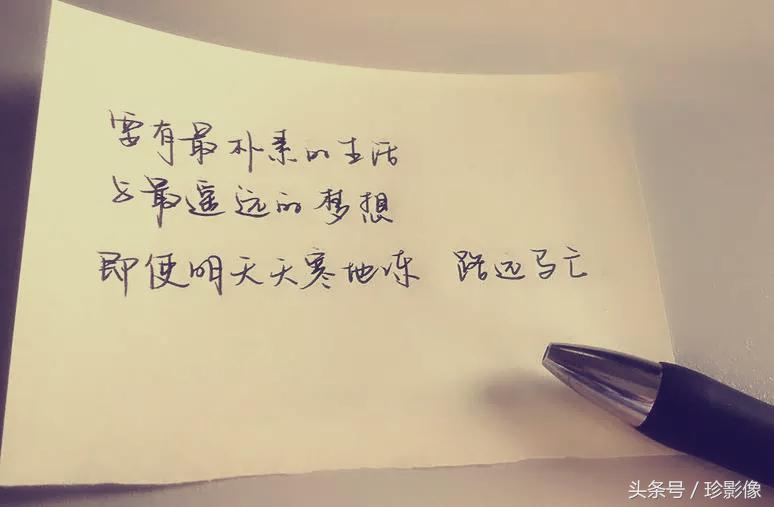 要有最朴素的生活
与最遥远的梦想
即使明天天寒地冻 路远马亡
头条号/珍影像